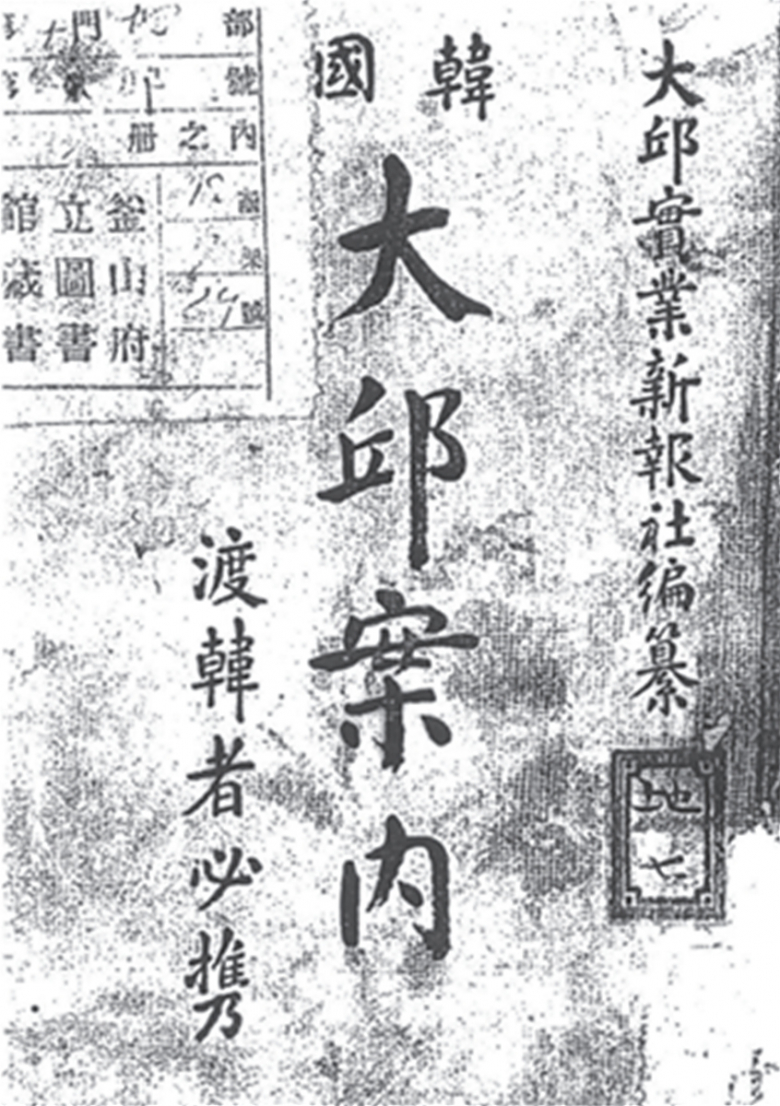 大邱實業新報社編纂
韓國
大邱案内
渡韓者必携
地
七
部 門
號
內之冊
釜山府
立圖書
館藏書